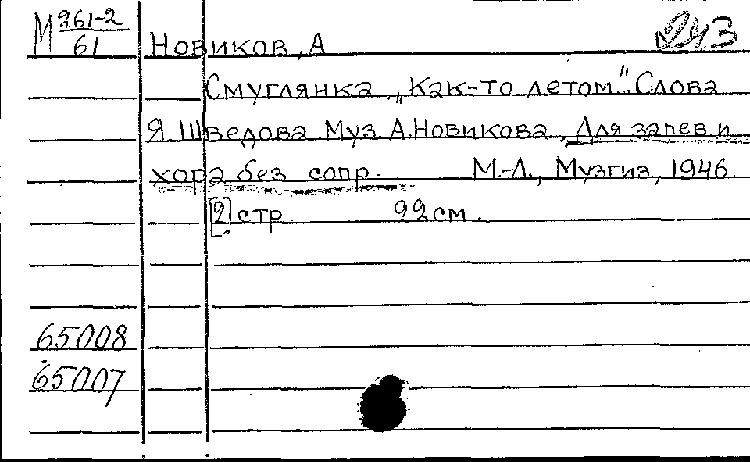 М 961-2
61
243
Новиков, А
Смуглянка „Как-то летом". Слова
Я Шведова Муз А.Новикова. Для запев и
хора без сопр. М.-Л., Музгиз, 1946
[2] стр 22 см.
65008
65007